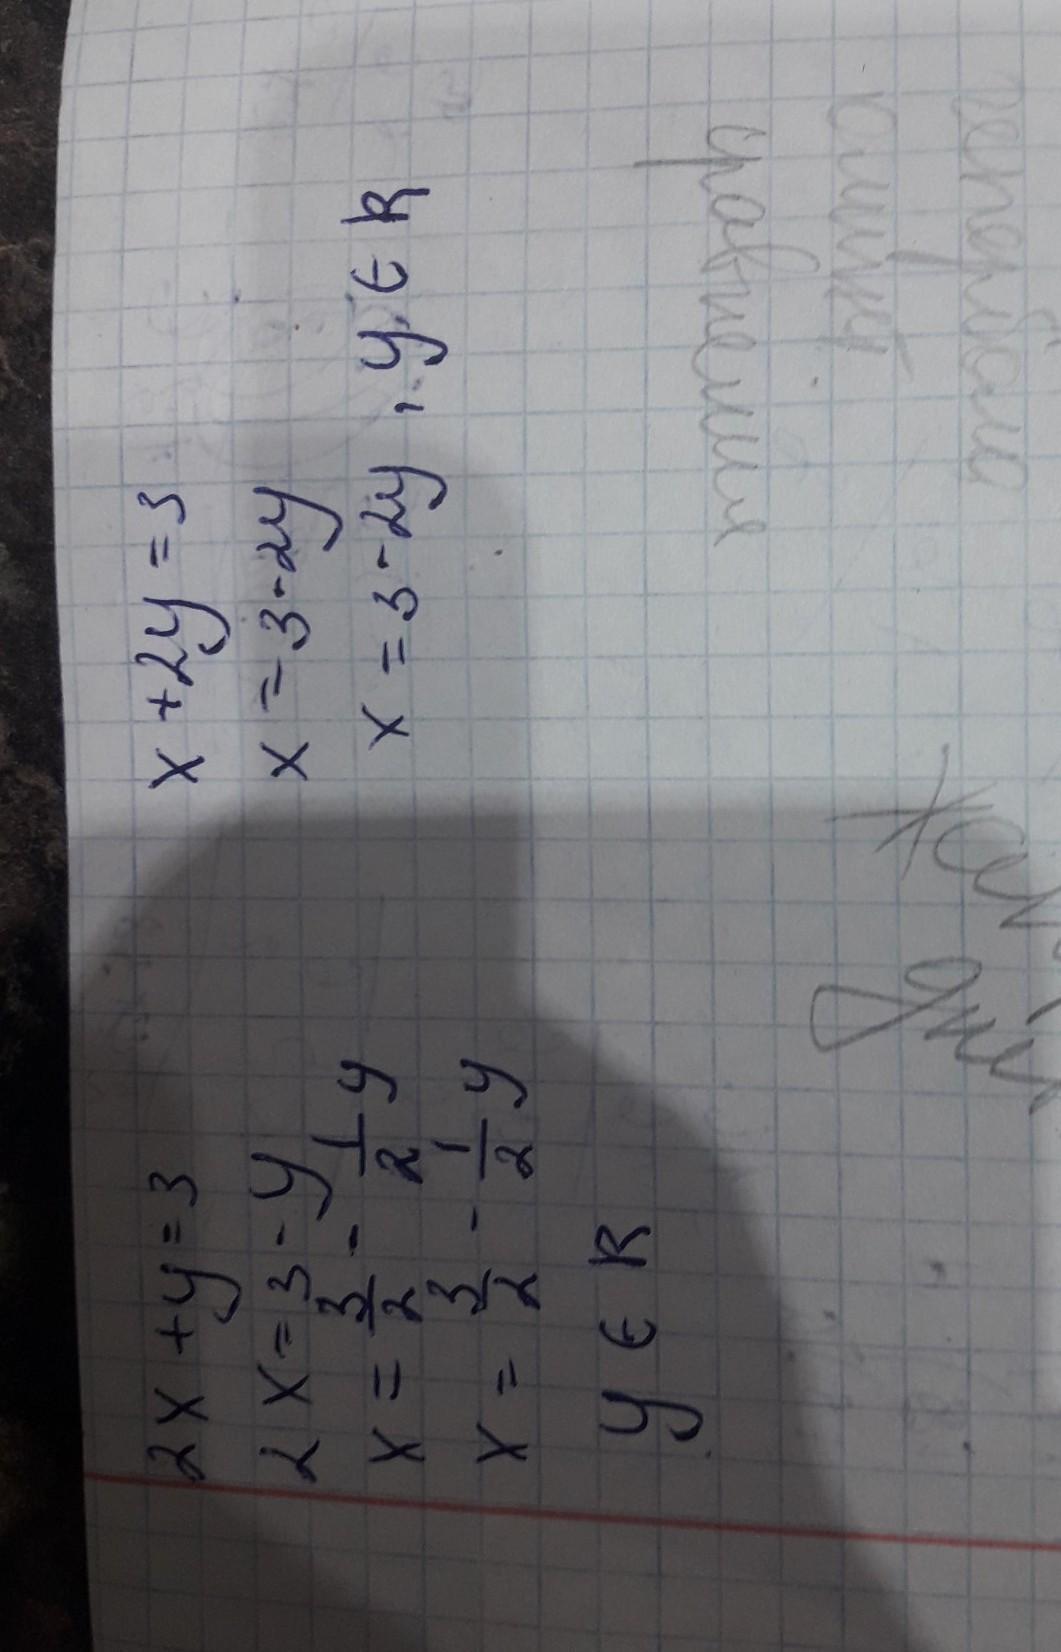 2x + y = 3
2x = 3 - y
x = 3/2 - 1/2 y
x = 3/2 - 1/2 y
y ∈ R
x + 2y = 3
x = 3 - 2y
x = 3 - 2y, y ∈ R
сравнение